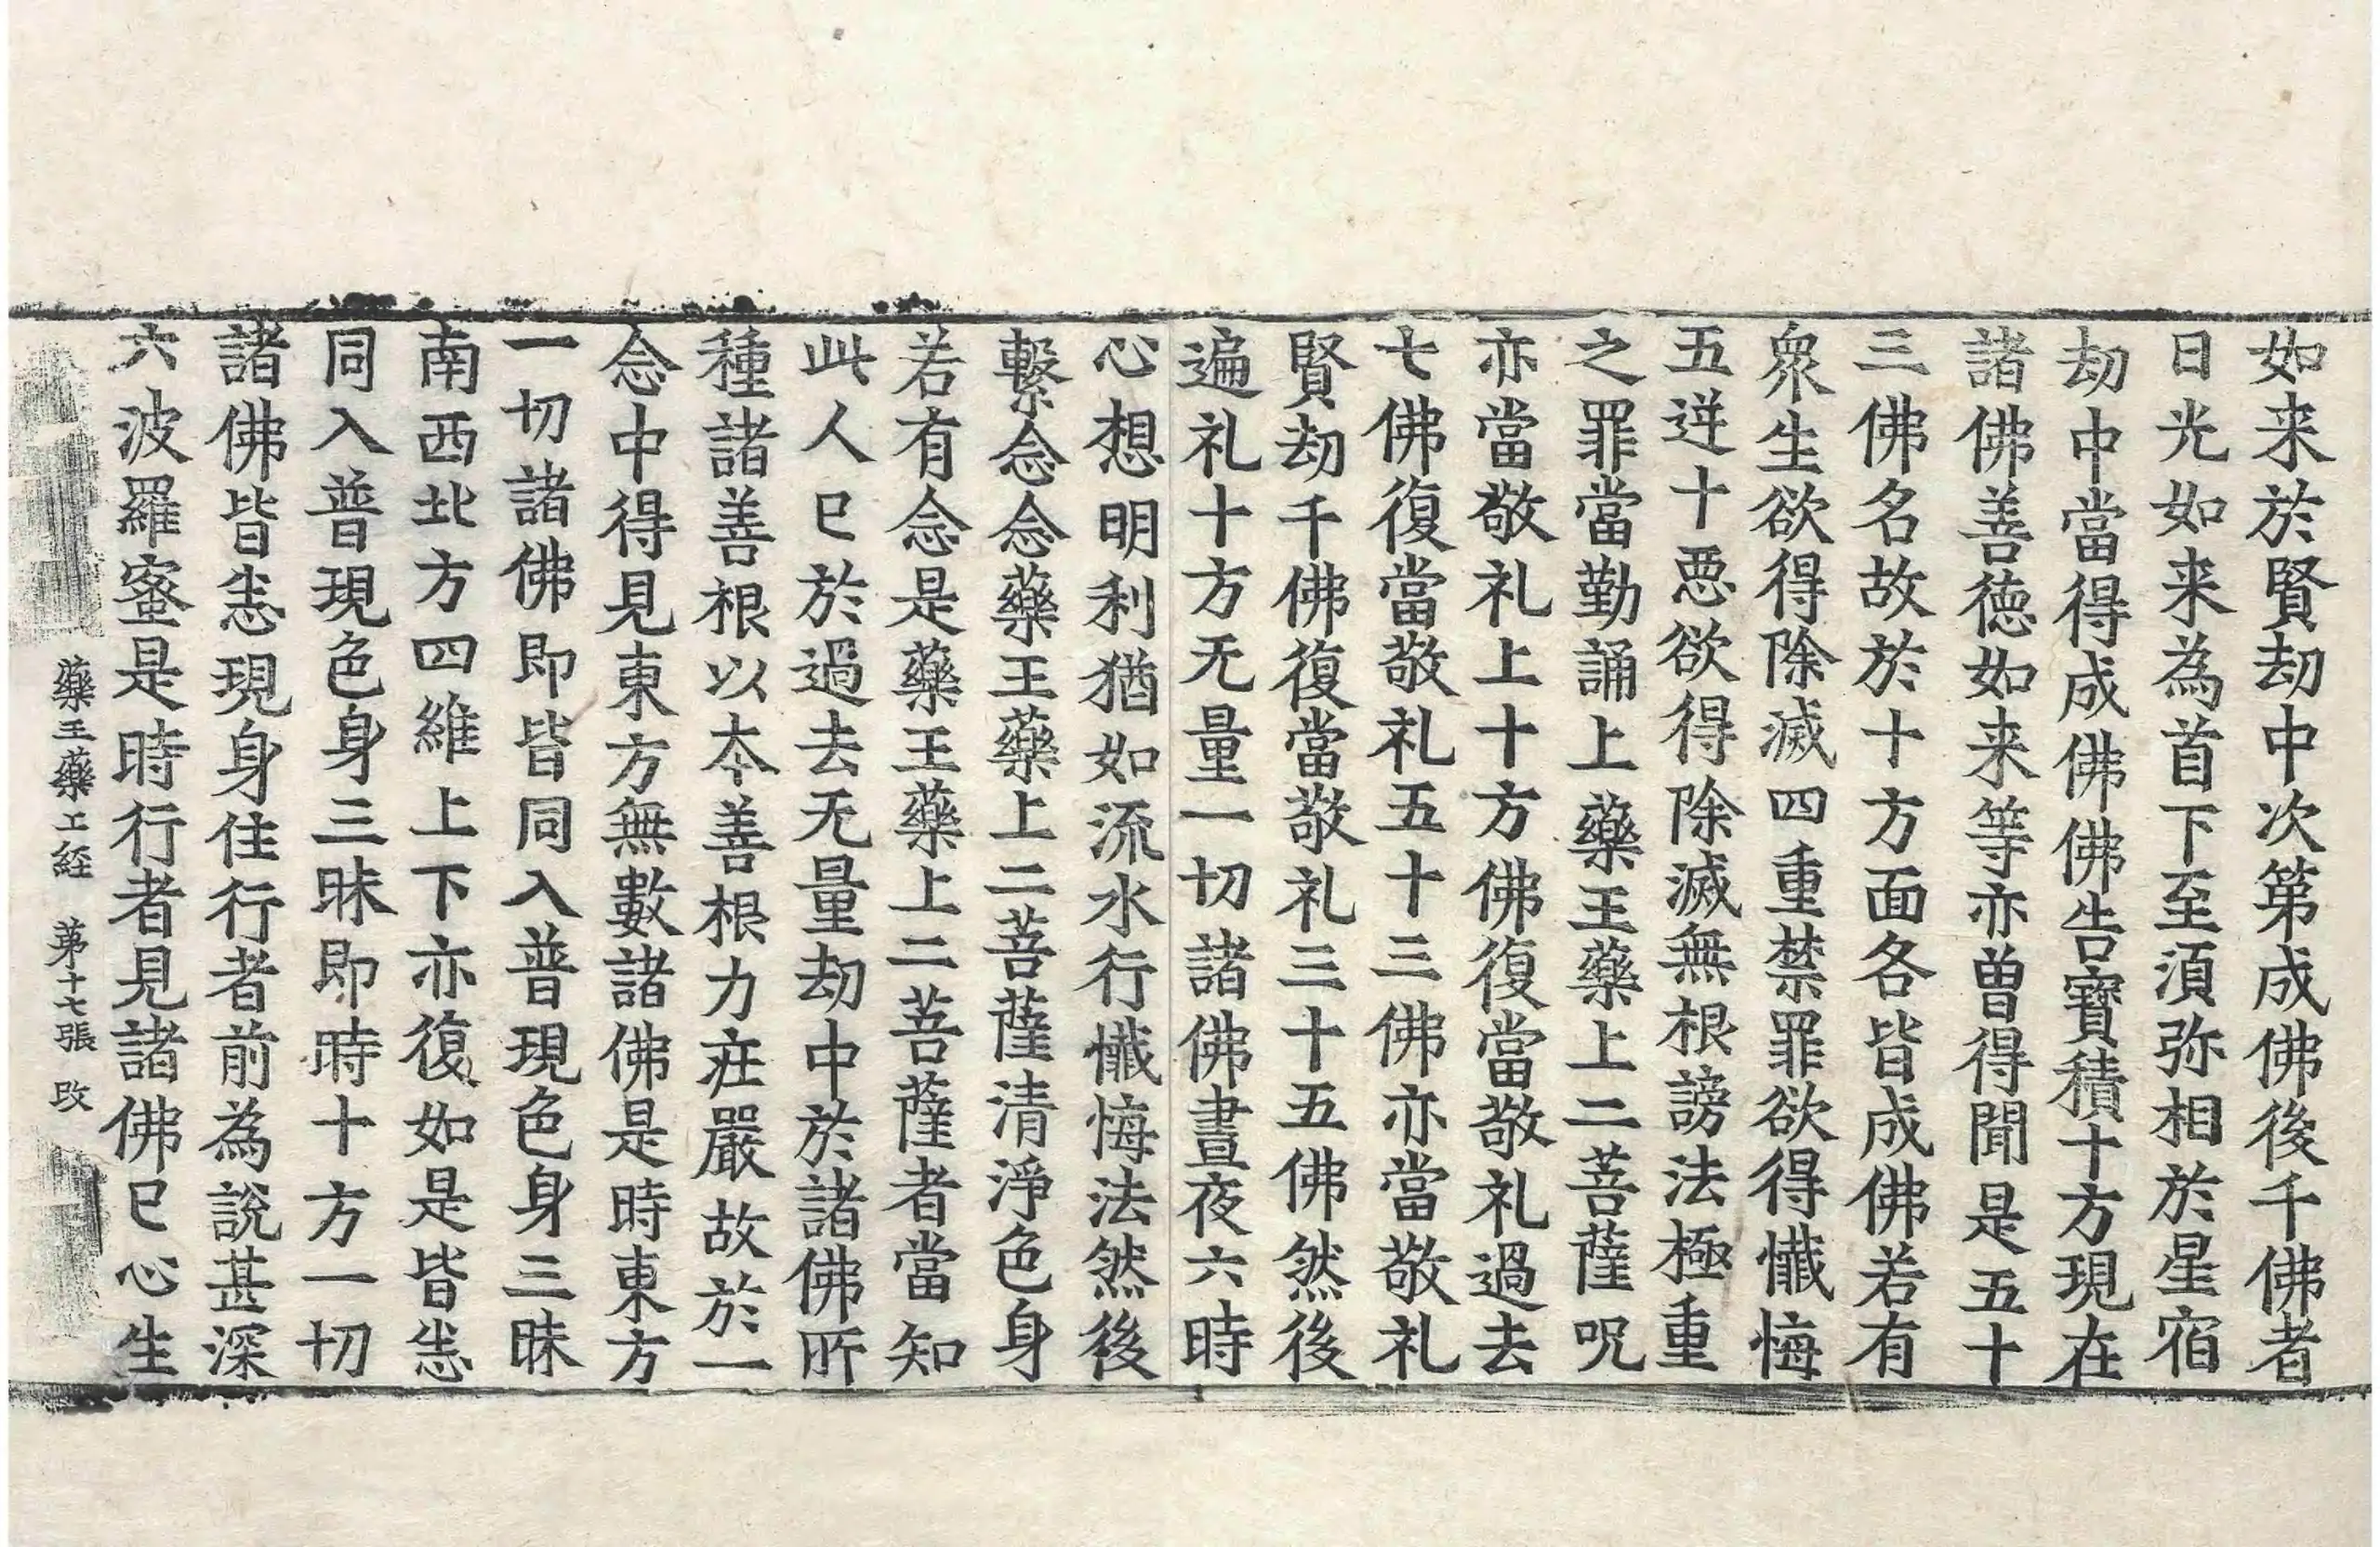 如来於賢劫中次第成佛後千佛者
日光如来為首下至湏弥相於星宿
劫中當得成佛佛告寶積十方現在
諸佛善徳如来等亦曽得聞是五十
三佛名故於十方面各皆成佛若有
衆生欲得除滅四重禁罪欲得懺悔
五逆十悪欲得除滅無根謗法極重
之罪當勤誦上藥王藥上二菩薩呪
亦當敬礼上十方佛復當敬礼過去
七佛復當敬礼五十三佛亦當敬礼
賢劫千佛復當敬礼三十五佛然後
遍礼十方无量一切諸佛晝夜六時
心想明利猶如流水行懺悔法然後
繫念念藥王藥上二菩薩清淨色身
若有念是藥王藥上二菩薩者當知
此人已於過去无量劫中於諸佛所
種諸善根以本善根力疘嚴故於一
念中得見東方無數諸佛是時東方
一切諸佛即皆同入普現色身三昧
南西北方四維上下亦復如是皆悉
同入普現色身三昧即時十方一切
諸佛皆悉現身住行者前為説甚深
六波羅蜜是時行者見諸佛已心生
藥王藥上経 苐十七張 改